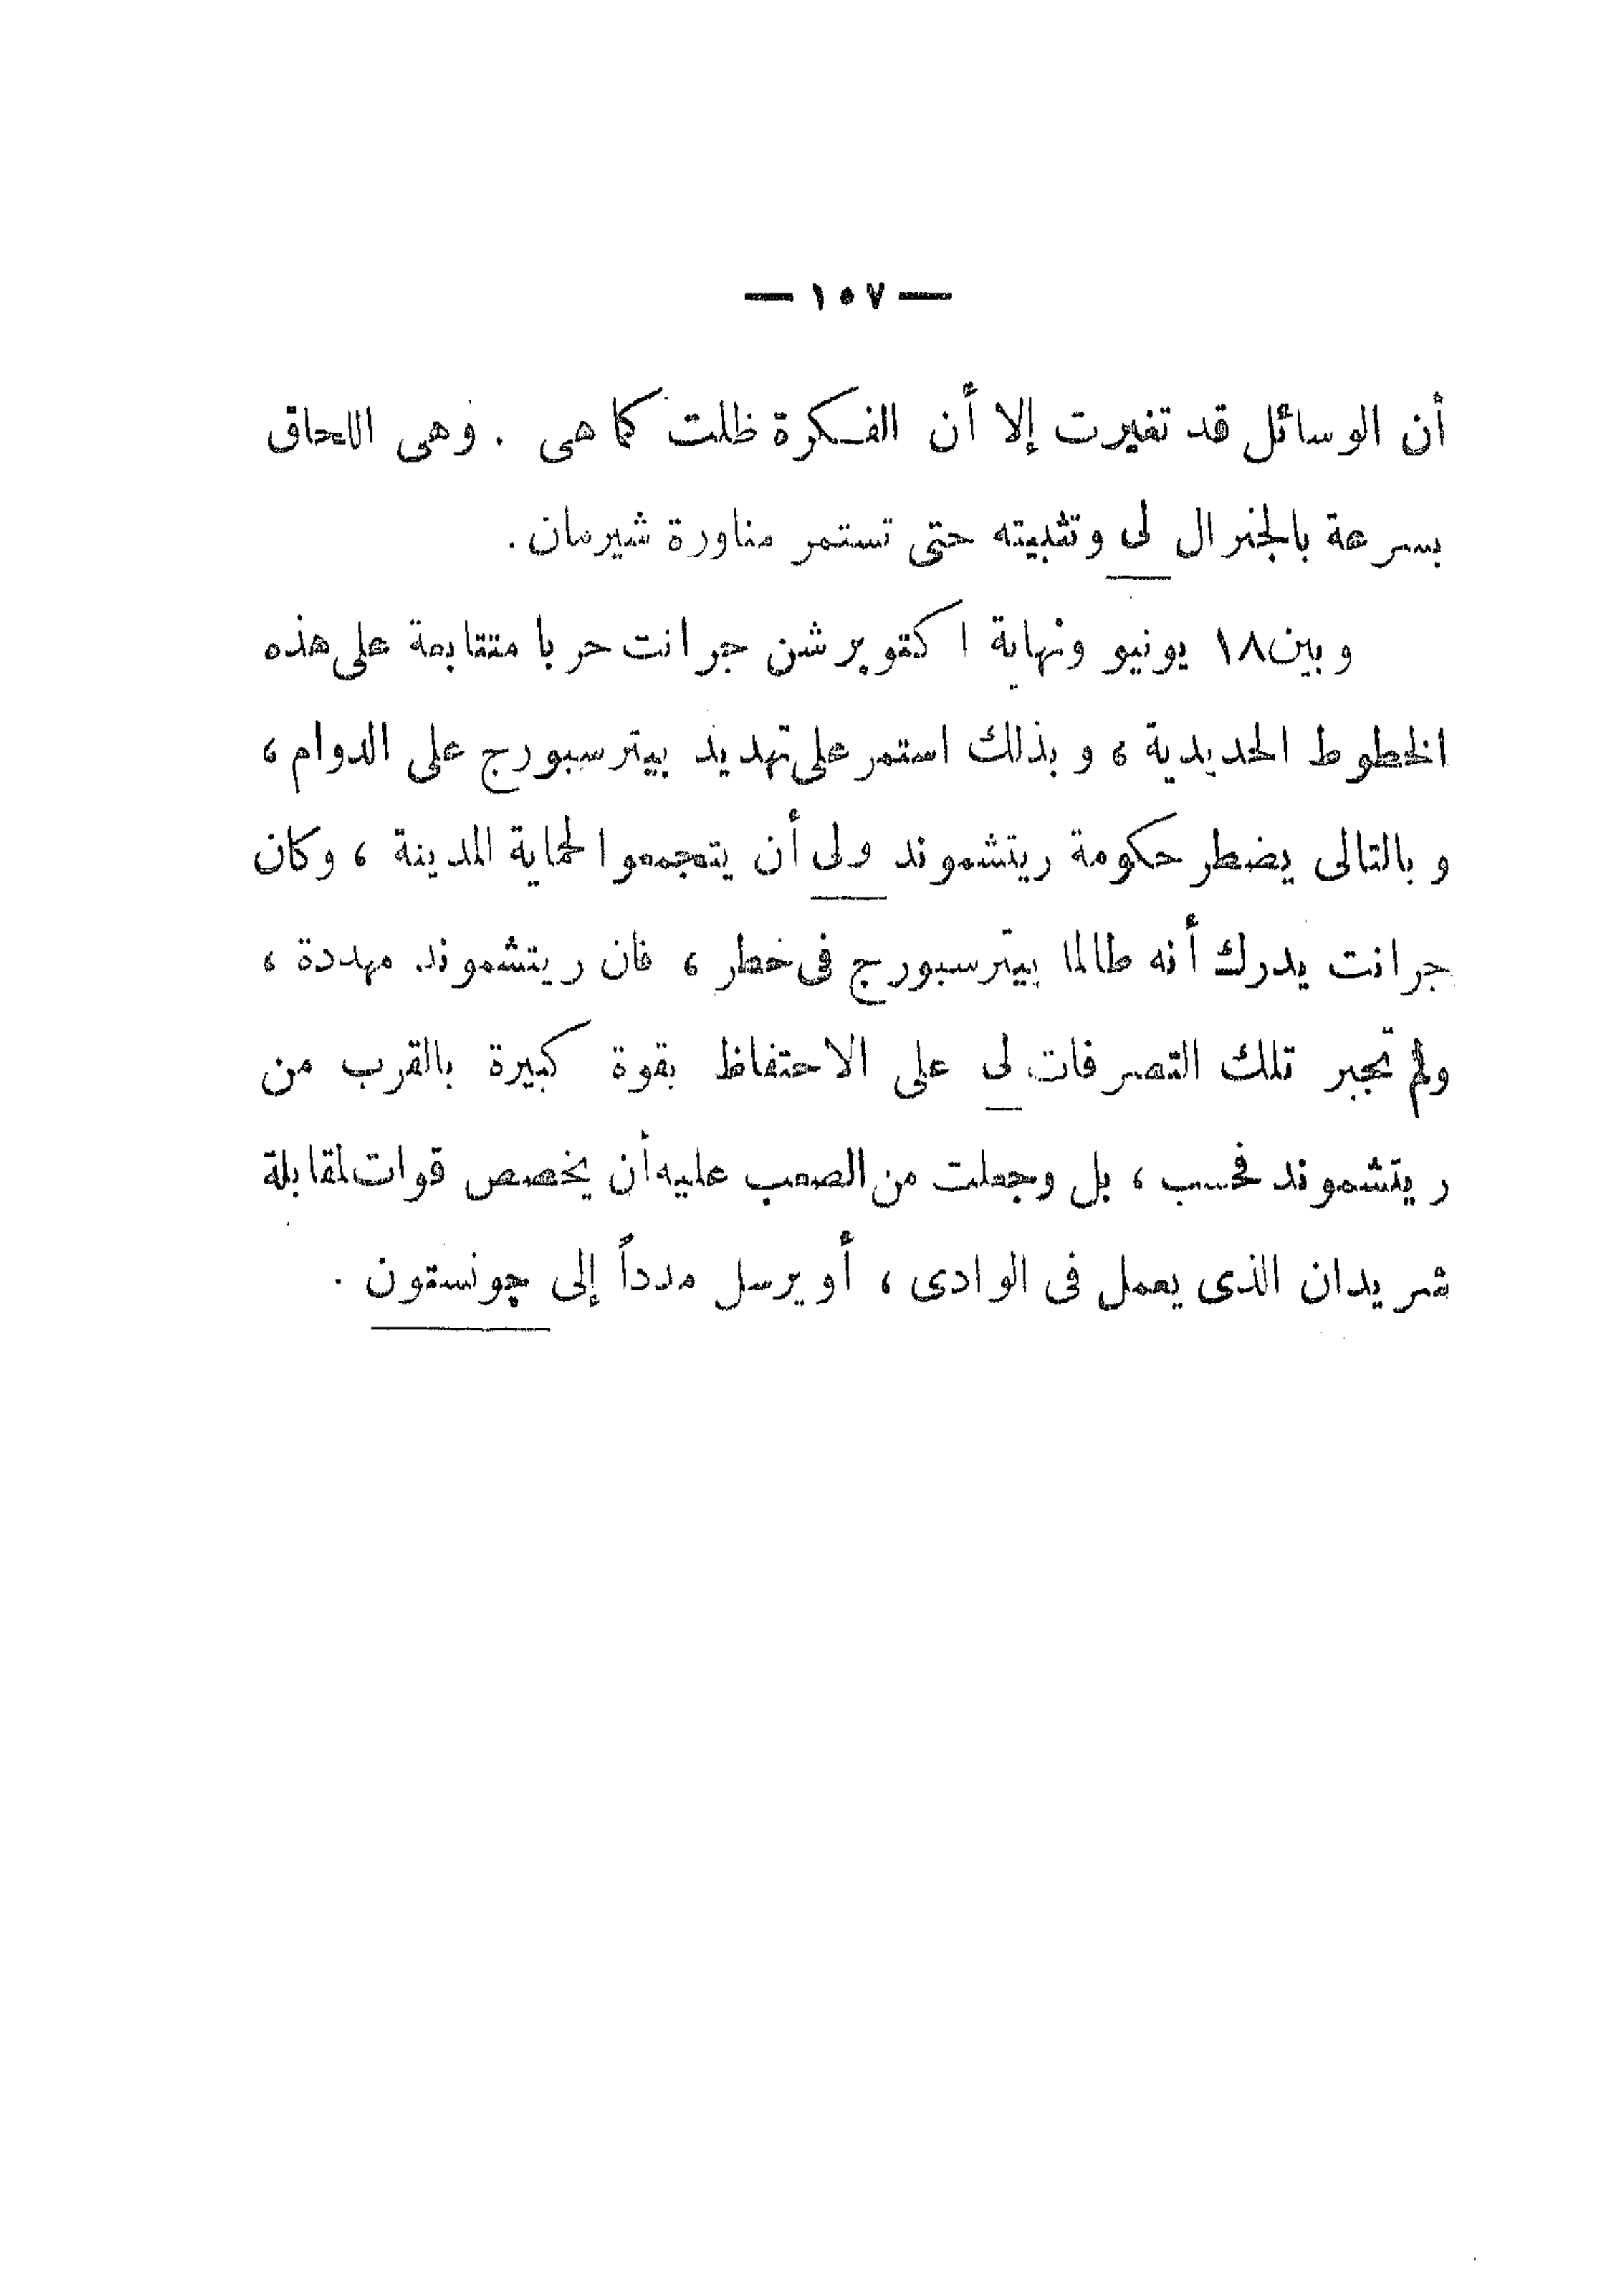 — ١٥٧ —
أن الوسائل قد تغيرت إلا أن الفكرة ظلت كما هى . وهى اللحاق
بسرعة بالجنرال لى وتثبيته حتى تستمر مناورة شيرمان .
وبين ١٨ يونيو ونهاية اكتوبر شن جرانت حربا متتابعة على هذه
الخطوط الحديدية ، وبذلك استمر على تهديد بيترسبورج على الدوام ،
وبالتالى يضطر حكومة ريتشموند ولى أن يتجمعوا لحماية المدينة ، وكان
جرانت يدرك أنه طالما بيترسبورج فى خطر ، فان ريتشموند مهددة ،
ولم تجبر تلك التصرفات لى على الاحتفاظ بقوة كبيرة بالقرب من
ريتشموند فحسب ، بل وجعلت من الصعب عليه أن يخصص قوات لمقابلة
شريدان الذى يعمل فى الوادى ، أو يرسل مدداً إلى چونستون .